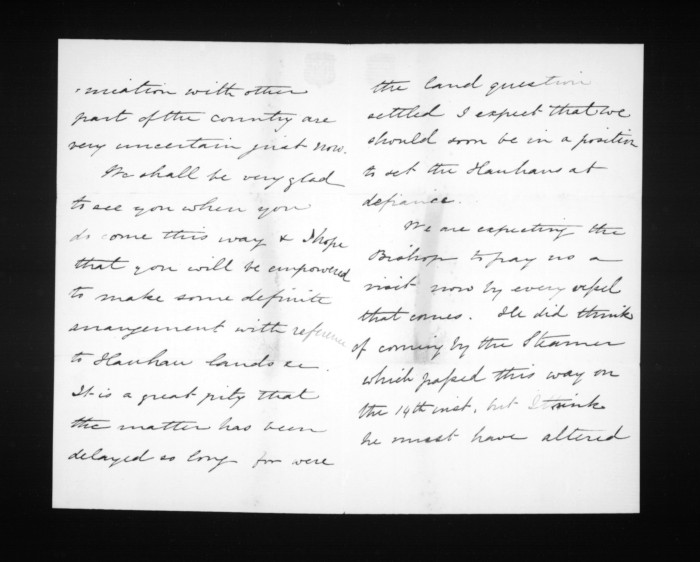 -nication with other
part of the country are
very uncertain just now.
We shall be very glad
to see you when you
do come this way & I hope
that you will be empowered
to make some definite
arrangement with reference
to Hauhau lands &c.
It is a great pity that
the matter has been
delayed so long for were
the land question
settled I expect that we
should soon be in a position
to set the Hauhaus at
defiance.
We are expecting the
Bishop to pay us a
visit now by every vessel
that comes. He did think
of coming by the Steamer
which passed this way on
the 14th inst. but I think
he must have altered